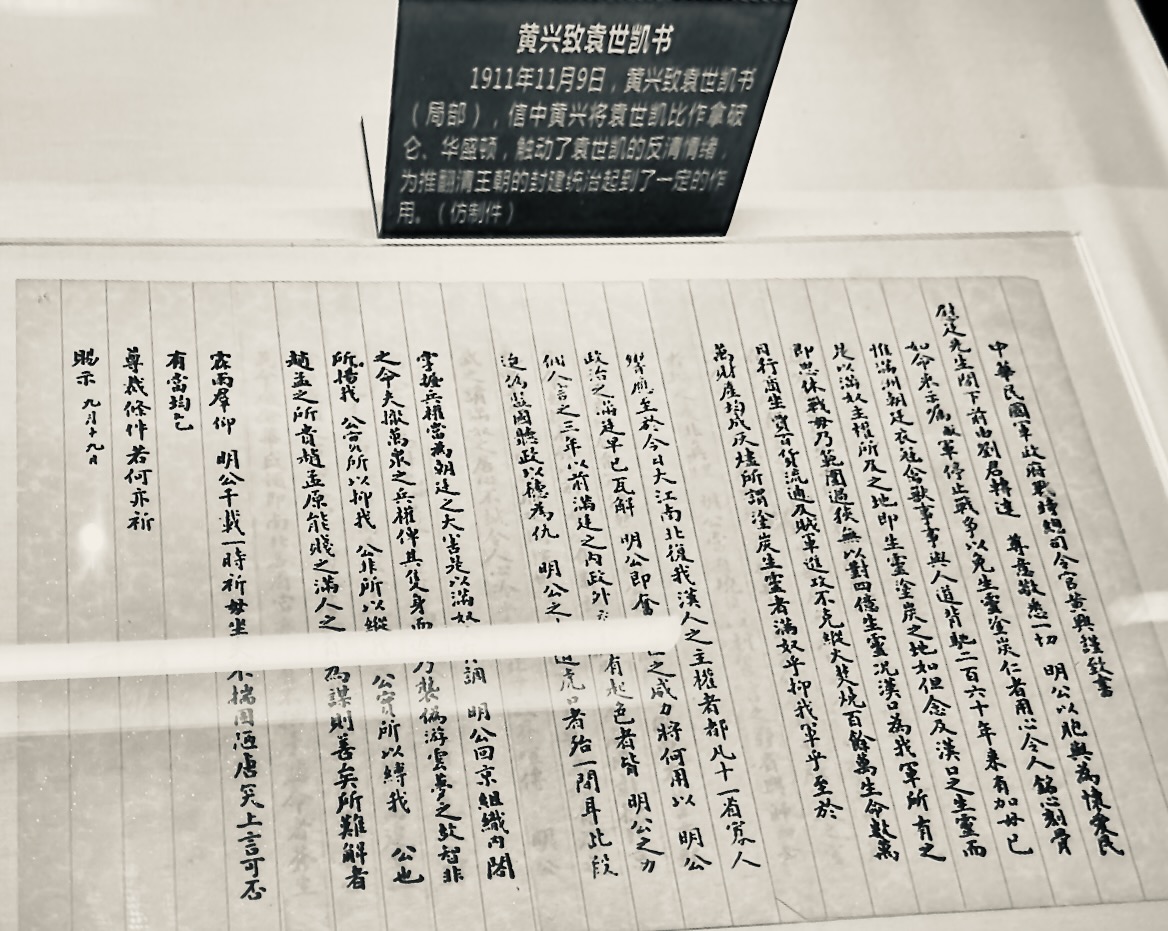 黄兴致袁世凯书
1911年11月9日，黄兴致袁世凯书
（局部），信中黄兴将袁世凯比作拿破
仑、华盛顿，触动了袁世凯的反清情绪，
为推翻清王朝的封建统治起到了一定的作
用。（仿制件）
中華民國軍政府戰時總司令官黃興謹致書
慰廷先生閣下前由劉君轉達 尊意敬悉一切 明公以胞與為懷愛民
如命來示為 敝軍停止戰爭以免生靈塗炭仁者用心令人銘心刻骨
惟滿洲朝廷衣社會獸事事與人道背馳二百六十年來有加毋已
是以滿奴主權所及之地即生靈塗炭之地如但念及漢口之生靈而
即思休戰毋乃範圍過狹無以對四億生靈況漢口為我軍所有之
日行商坐賈百貨流通及賊軍進攻不克縱火焚燒百餘萬生命數萬
萬財產均成灰燼所謂塗炭生靈者滿奴乎抑我軍乎至於
響應至於今日大江南北復我漢人之主權者都凡十一省寡人
政治之滿廷早已瓦解 明公即奮 之威力將何用以 明公
個人言之三年以前滿廷之內政外 有起色者皆 明公之力
迨偽監國聽政以德為仇 明公之 虎口者殆一間耳此段
掌握兵權當為朝廷之大害是以滿奴 調 明公回京組織內閣
之命夫撤萬眾之兵權俾其隻身而 乃襲偽游雲夢之故智非
所揚我 公實所以抑我 公非所以縱 公實所以縛我 公也
趙孟之所貴趙孟原能賤之滿人之 為謀則善矣所難解者
霖雨群仰 明公千載一時祈毋坐 不揣固陋唐突上言可否
有當均乞
尊裁條件若何亦祈
賜示 九月十九日